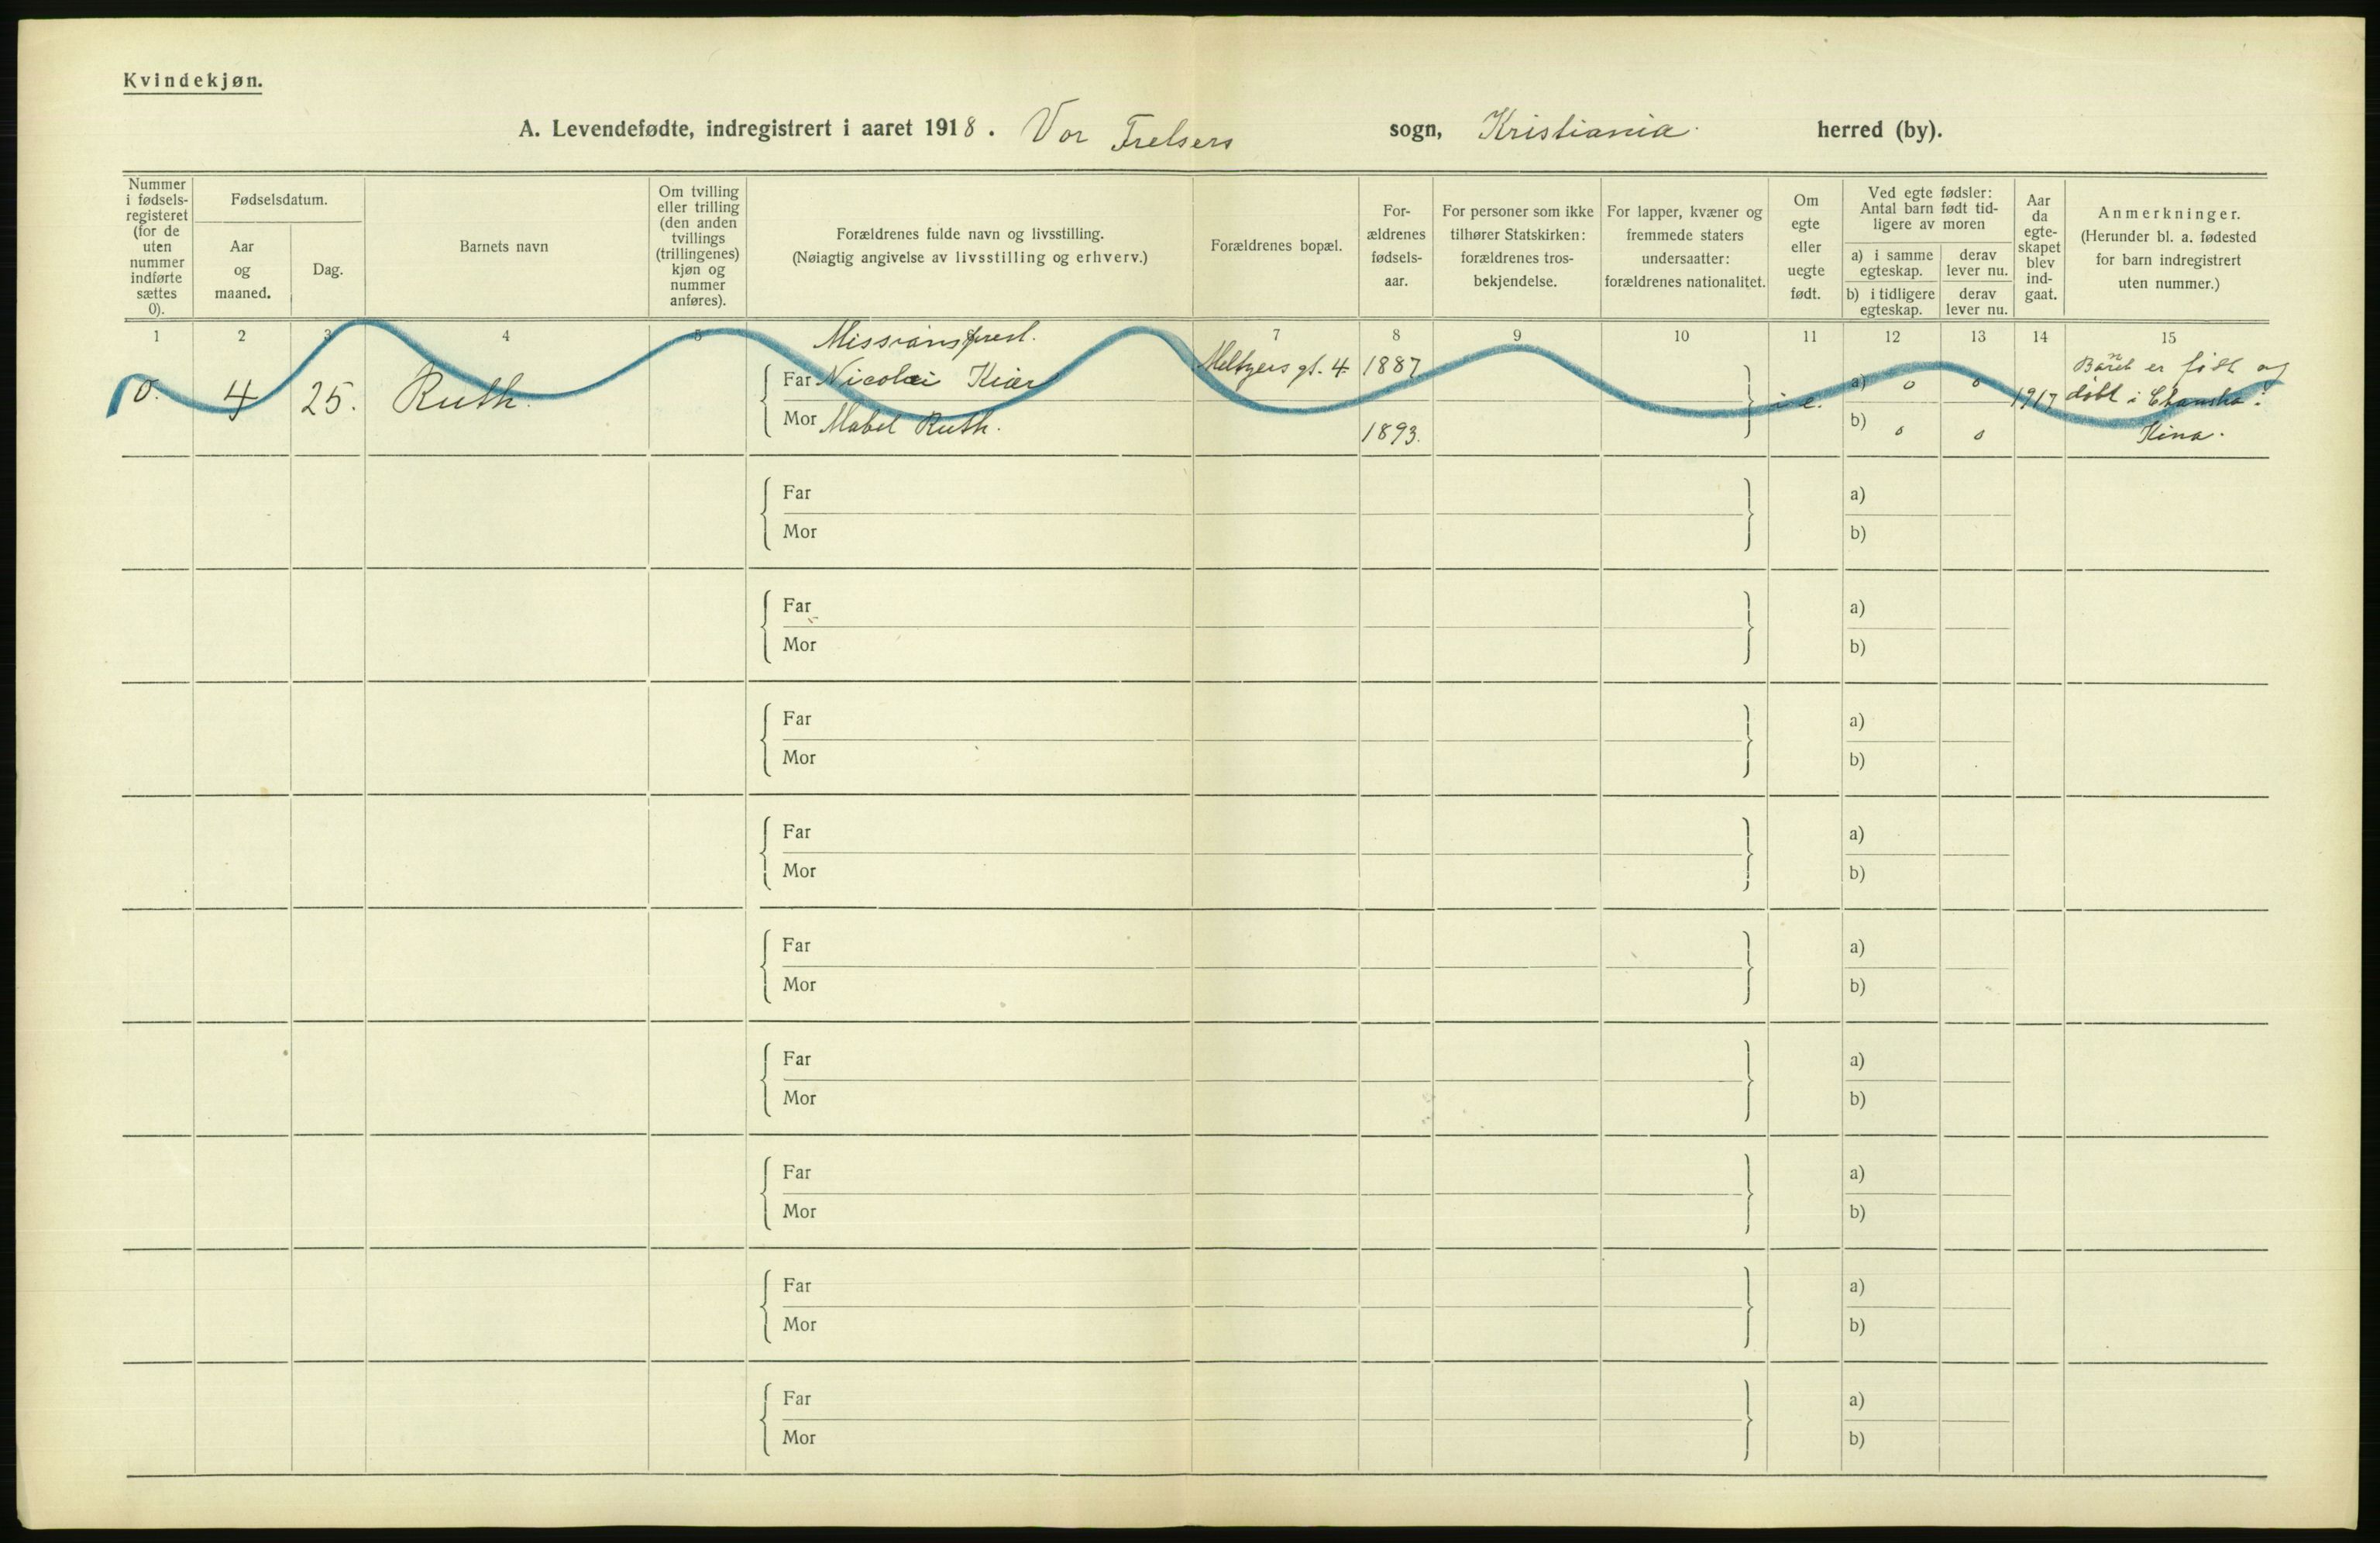 Kvindekjøn.
A. Levendefødte, indregistrert i aaret 1918. Vor Frelsers sogn, Kristiania herred (by).
Nummer i fødsels-registeret (for de uten nummer indførte sættes 0).
Fødselsdatum.
Aar og maaned.
Dag.
Barnets navn
Om tvilling eller trilling (den anden tvillings (trillingenes) kjøn og nummer anføres).
Forældrenes fulde navn og livsstilling.
(Nøiagtig angivelse av livsstilling og erhverv.)
Forældrenes bopæl.
For-ældrenes fødsels-aar.
For personer som ikke tilhører Statskirken: forældrenes tros-bekjendelse.
For lapper, kvæner og fremmede staters undersaatter: forældrenes nationalitet.
Om egte eller uegte født.
Ved egte fødsler: Antal barn født tid-ligere av moren
a) i samme egteskap.
derav lever nu.
b) i tidligere egteskap.
derav lever nu.
Aar da egte-skapet blev ind-gaat.
Anmerkninger.
(Herunder bl. a. fødested for barn indregistrert uten nummer.)
1 2 3 4 5 6 7 8 9 10 11 12 13 14 15
Missionsprest.
0. 4 25. Ruth. Far Nicolai Kiær Meltzers gt. 4 1887. i e. a) 0 0 1917 Barnet er født og
døbt i Changsha i
Mor Mabel Ruth. 1893. b) 0 0 Kina.
Far a)
Mor b)
Far a)
Mor b)
Far a)
Mor b)
Far a)
Mor b)
Far a)
Mor b)
Far a)
Mor b)
Far a)
Mor b)
Far a)
Mor b)
Far a)
Mor b)